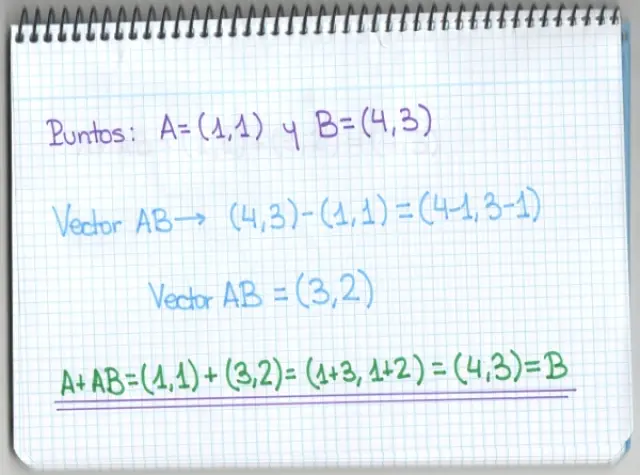 Puntos: A=(1,1) y B=(4,3)
Vector AB→ (4,3)-(1,1)=(4-1,3-1)
Vector AB=(3,2)
A+AB=(1,1)+(3,2)=(1+3,1+2)=(4,3)=B